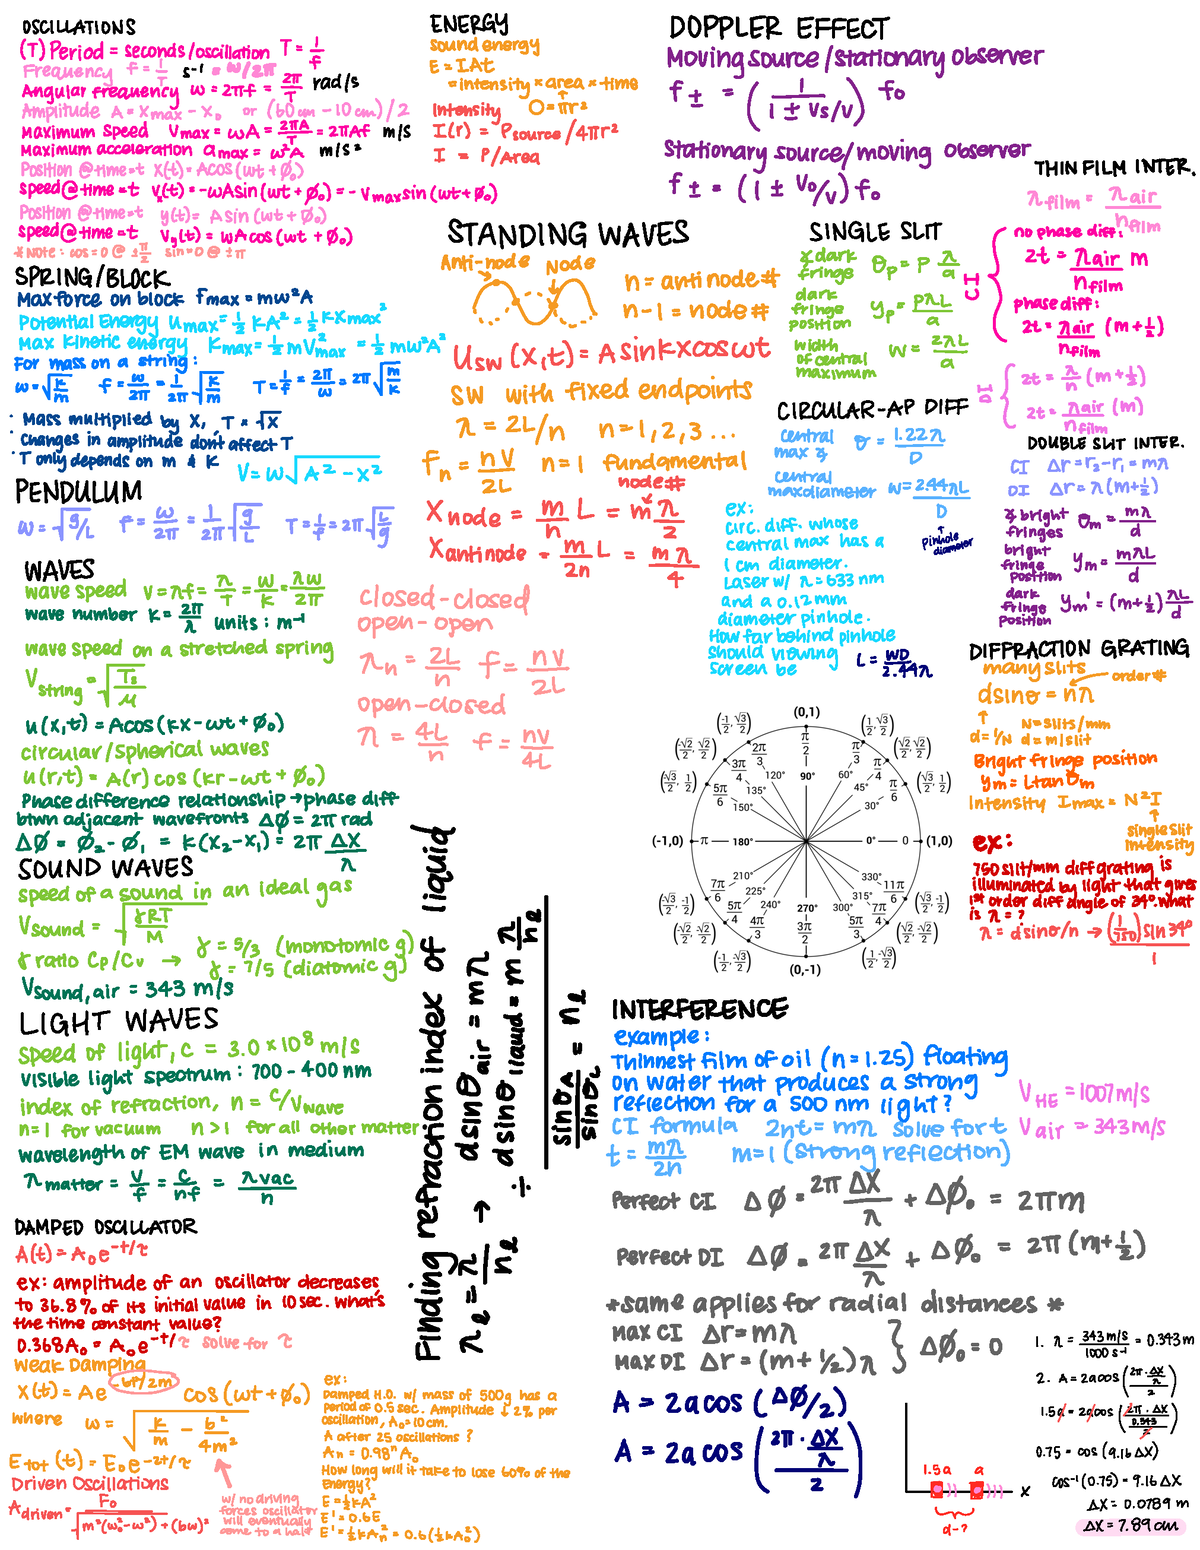 OSCILLATIONS
(T) Period = seconds/oscillation T = 1/f
Frequency f = 1/T s⁻¹ = ω/2π
Angular frequency ω = 2πf = 2π/T rad/s
Amplitude A = Xmax - X₀ or (60cm - 10cm)/2
Maximum speed Vmax = ωA = 2πA/T = 2πAf m/s
Maximum acceleration amax = ω²A m/s²
Position @ time=t x(t) = Acos(ωt + Ø₀)
speed @ time=t Vx(t) = -ωAsin(ωt + Ø₀) = -Vmaxsin(ωt + Ø₀)
Position @ time=t y(t) = Asin(ωt + Ø₀)
speed @ time=t Vy(t) = ωAcos(ωt + Ø₀)
*NOTE: cos = 0 @ ±π/2 sin = 0 @ ±π
SPRING/BLOCK
Max force on block Fmax = mω²A
Potential Energy Umax = ½kA² = ½kXmax²
Max Kinetic energy Kmax = ½mV²max = ½mω²A²
For mass on a string:
ω = √k/m f = ω/2π = 1/2π √k/m T = 1/f = 2π/ω = 2π√m/k
· Mass multiplied by X, T = √X
· Changes in amplitude don't affect T
· T only depends on m & k V = ω√A² - X²
PENDULUM
ω = √g/L f = ω/2π = 1/2π √g/L T = 1/f = 2π√L/g
WAVES
wave speed V = λf = λ/T = ω/k = λω/2π
wave number k = 2π/λ units: m⁻¹
wave speed on a stretched spring
Vstring = √Ts/μ
u(x,t) = Acos(kx - ωt + Ø₀)
circular/spherical waves
u(r,t) = A(r)cos(kr - ωt + Ø₀)
Phase difference relationship → phase diff
btwn adjacent wavefronts ΔØ = 2π rad
ΔØ = Ø₂ - Ø₁ = k(X₂ - X₁) = 2π ΔX/λ
SOUND WAVES
speed of a sound in an ideal gas
Vsound = √γRT/M
γ ratio Cp/Cv → γ = 5/3 (monotomic g)
γ = 7/5 (diatomic g)
Vsound,air = 343 m/s
LIGHT WAVES
speed of light, c = 3.0 × 10⁸ m/s
visible light spectrum: 700 - 400 nm
index of refraction, n = c/Vwave
n=1 for vacuum n>1 for all other matter
wavelength of EM wave in medium
λmatter = V/f = c/nf = λvac/n
DAMPED OSCILLATOR
A(t) = A₀e^-t/τ
ex: amplitude of an oscillator decreases
to 36.8% of its initial value in 10 sec. What's
the time constant value?
0.368A₀ = A₀e^-t/τ solve for τ
Weak Damping
X(t) = Ae^-bt/2m cos(ωt + Ø₀)
where ω = √k/m - b²/4m²
Etot(t) = E₀e^-2t/τ
Driven Oscillations
Adriven = F₀/√m²(ω₀² - ω²) + (bω)²
w/ no driving
forces oscillator
will eventually
come to a halt
ex:
Damped H.O. w/ mass of 500g has a
period of 0.5 sec. Amplitude ↓ 2% per
oscillation, A₀ = 10cm.
A after 25 oscillations?
An = 0.98ⁿA₀
How long will it take to lose 60% of the
energy?
E = ½kA²
E' = 0.6E
E' = ½kAn² = 0.6(½kA₀²)
ENERGY
sound energy
E = IAt
= intensity × area × time
O = πr²
Intensity
I(r) = Psource/4πr²
I = P/Area
DOPPLER EFFECT
Moving source/stationary observer
f± = (1/1 ± Vs/V) f₀
Stationary source/moving observer
f± = (1 ± V₀/V) f₀
STANDING WAVES
Anti-node Node
n = antinode #
n-1 = node #
Usw(x,t) = Asinkxcosωt
SW with fixed endpoints
λ = 2L/n n = 1,2,3...
Fn = nV/2L n=1 fundamental
node#
Xnode = m/n L = mλ/2
Xantinode = m/2n L = mλ/4
closed-closed
open-open
λn = 2L/n f = nV/2L
open-closed
λ = 4L/n f = nV/4L
Finding refraction index of liquid
λℓ = λ/nℓ → dsinθair = mλ
÷ dsinθliquid = m λ/nℓ
sinθA/sinθL = nℓ
SINGLE SLIT
∡ dark
fringe θp = p λ/a
dark
fringe
position yp = pλL/a
width
of central
maximum W = 2λL/a
CIRCULAR-AP DIFF
central
max ∡ θ = 1.22λ/D
central
max diameter W = 2.44λL/D
pinhole
diameter
ex:
circ. diff. whose
central max has a
1 cm diameter.
Laser w/ λ = 633 nm
and a 0.12 mm
diameter pinhole.
How far behind pinhole
should viewing
screen be L = WD/2.44λ
THIN FILM INTER.
λfilm = λair/nfilm
CI
no phase diff:
2t = λair/nfilm m
phase diff:
2t = λair/nfilm (m+½)
DI
2t = λ/n (m+½)
2t = λair/nfilm (m)
DOUBLE SLIT INTER.
CI Δr = r₂ - r₁ = mλ
DI Δr = λ(m+½)
∡ bright
fringes θm = mλ/d
bright
fringe
position ym = mλL/d
dark
fringe
position ym' = (m+½) λL/d
DIFFRACTION GRATING
many slits
order #
dsinθ = nλ
d = 1/N N = slits/mm
d = m/slit
Bright fringe position
ym = Ltanθm
Intensity Imax = N²I
single slit
intensity
ex:
750 slit/mm diff grating is
illuminated by light that gives
1st order diff angle of 34°. what
is λ = ?
λ = dsinθ/n → (1/750)sin34°/1
(0,1)
(-1/2, √3/2) (1/2, √3/2)
(-√2/2, √2/2) (√2/2, √2/2)
(-√3/2, 1/2) (√3/2, 1/2)
2π/3 π/2 π/3
3π/4 π/4
5π/6 π/6
120° 90° 60°
135° 45°
150° 30°
(-1,0) π 180° 0° 0 (1,0)
210° 330°
225° 315°
240° 270° 300°
7π/6 11π/6
5π/4 7π/4
4π/3 3π/2 5π/3
(-√3/2, -1/2) (√3/2, -1/2)
(-√2/2, -√2/2) (√2/2, -√2/2)
(-1/2, -√3/2) (1/2, -√3/2)
(0,-1)
INTERFERENCE
example:
Thinnest film of oil (n=1.25) floating
on water that produces a strong
reflection for a 500 nm light?
CI formula 2nt = mλ solve for t
t = mλ/2n m=1 (strong reflection)
VHE = 1007 m/s
Vair = 343 m/s
Perfect CI ΔØ = 2π ΔX/λ + ΔØ₀ = 2πm
Perfect DI ΔØ = 2π ΔX/λ + ΔØ₀ = 2π(m+½)
*same applies for radial distances*
MAX CI Δr = mλ
MAX DI Δr = (m+½)λ } ΔØ₀ = 0
A = 2acos(ΔØ/2)
A = 2acos(2π · ΔX/λ / 2)
1.5a a
x
d=?
1. λ = 343 m/s / 1000 s⁻¹ = 0.343 m
2. A = 2acos(2π · ΔX/λ / 2)
1.5a = 2acos(2π · ΔX/0.343 / 2)
0.75 = cos(9.16ΔX)
cos⁻¹(0.75) = 9.16ΔX
ΔX = 0.0789 m
ΔX = 7.89 cm